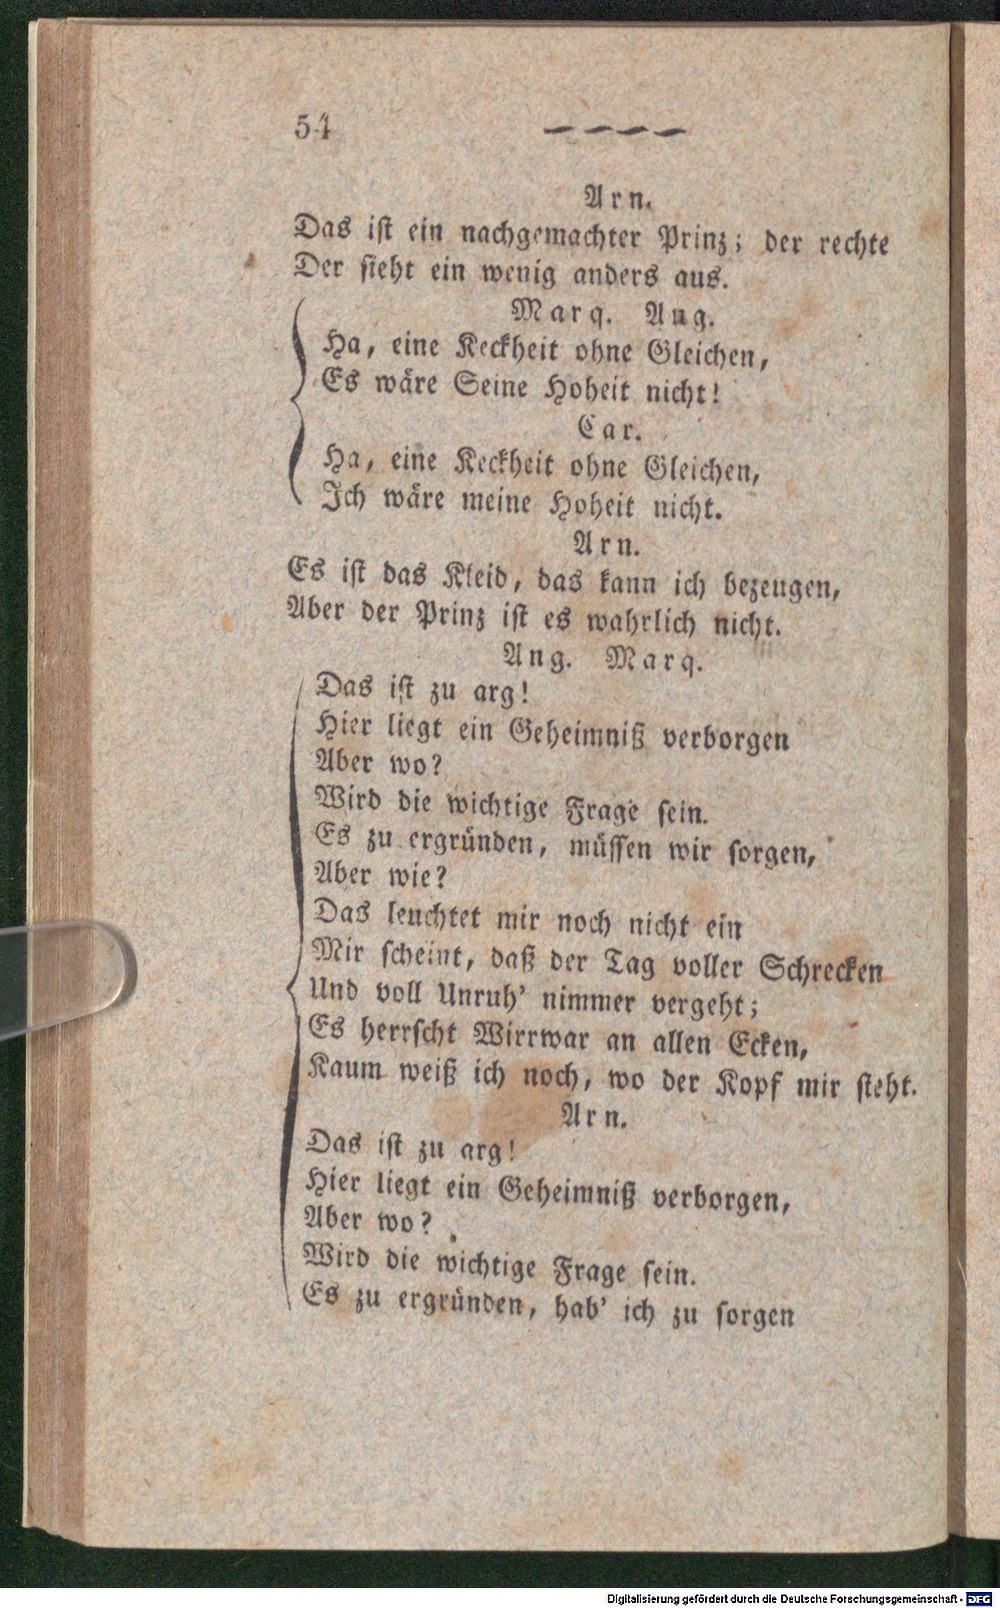 54 ----
Arn.
Das ist ein nachgemachter Prinz; der rechte
Der sieht ein wenig anders aus.
Marq. Ang.
Ha, eine Keckheit ohne Gleichen,
Es wäre Seine Hoheit nicht!
Car.
Ha, eine Keckheit ohne Gleichen,
Ich wäre meine Hoheit nicht.
Arn.
Es ist das Kleid, das kann ich bezeugen,
Aber der Prinz ist es wahrlich nicht.
Ang. Marq.
Das ist zu arg!
Hier liegt ein Geheimniß verborgen
Aber wo?
Wird die wichtige Frage sein.
Es zu ergründen, müssen wir sorgen,
Aber wie?
Das leuchtet mir noch nicht ein
Mir scheint, daß der Tag voller Schrecken
Und voll Unruh' nimmer vergeht;
Es herrscht Wirrwar an allen Ecken,
Kaum weiß ich noch, wo der Kopf mir steht.
Arn.
Das ist zu arg!
Hier liegt ein Geheimniß verborgen,
Aber wo?
Wird die wichtige Frage sein.
Es zu ergründen, hab' ich zu sorgen
Digitalisierung gefördert durch die Deutsche Forschungsgemeinschaft - DFG